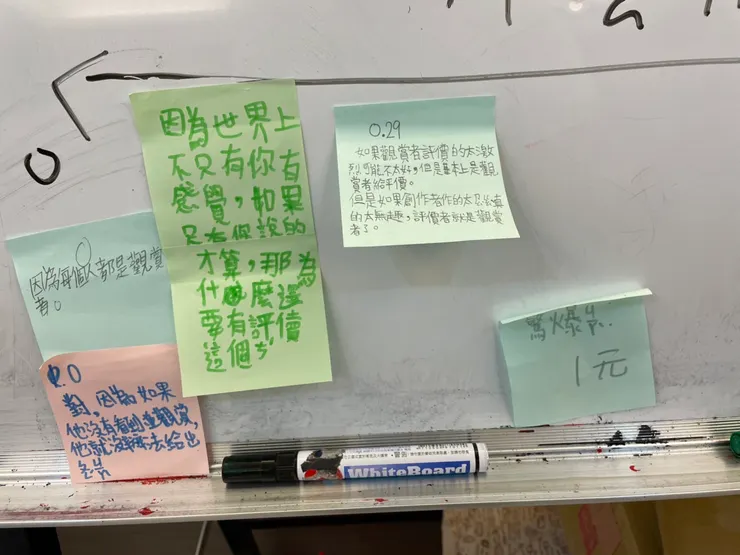 0
0
因為每個人都是觀賞
者。
因為世界上
不只有你有
感覺,如果
只有你說的
才算,那為
什麼還
要有評價
這個
0.29
如果觀賞者評價的太激
烈可能不太好,但是基本上是觀
賞者給評價。
但是如果創作者作的太
的太無趣,評價者就是觀賞者
了。
0
對,因為如果
他沒有看到並觀賞,
他就沒辦法去給出
1元
WhiteBoard